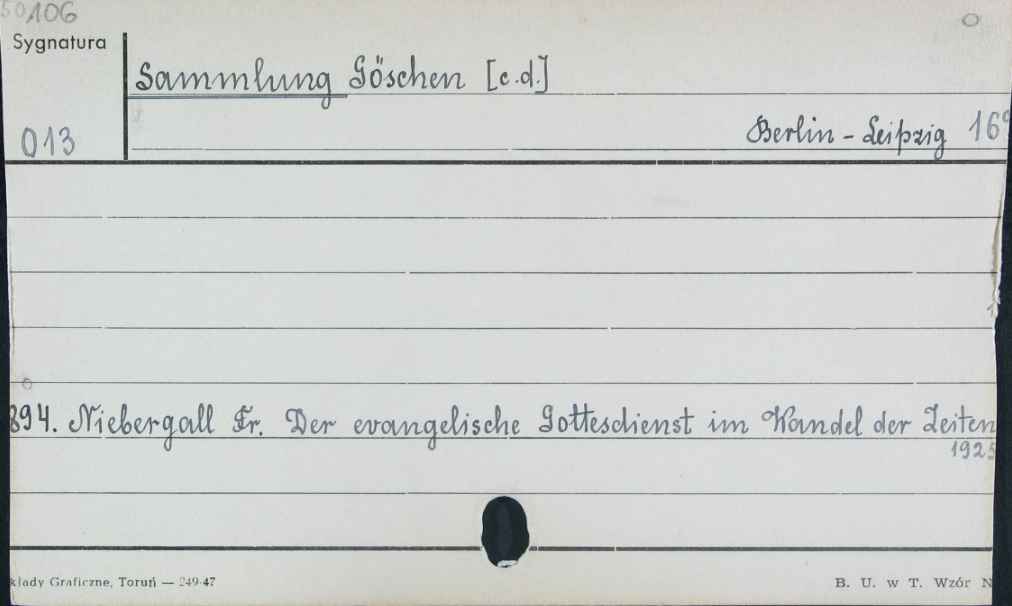 50106
Sygnatura
Sammlung Göschen [c.d.]
013
Berlin - Leipzig 16°
894. Niebergall Fr. Der evangelische Gottesdienst im Wandel der Zeiten
1925
kłady Graficzne, Toruń — 249-47
B. U. w T. Wzór N